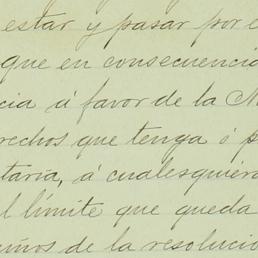 estar y pasar por e
que en consecuencia
cia á favor de la M
rechos que tenga ó p
taria, á cualesquiera
l límite que queda
minos de la resolucio